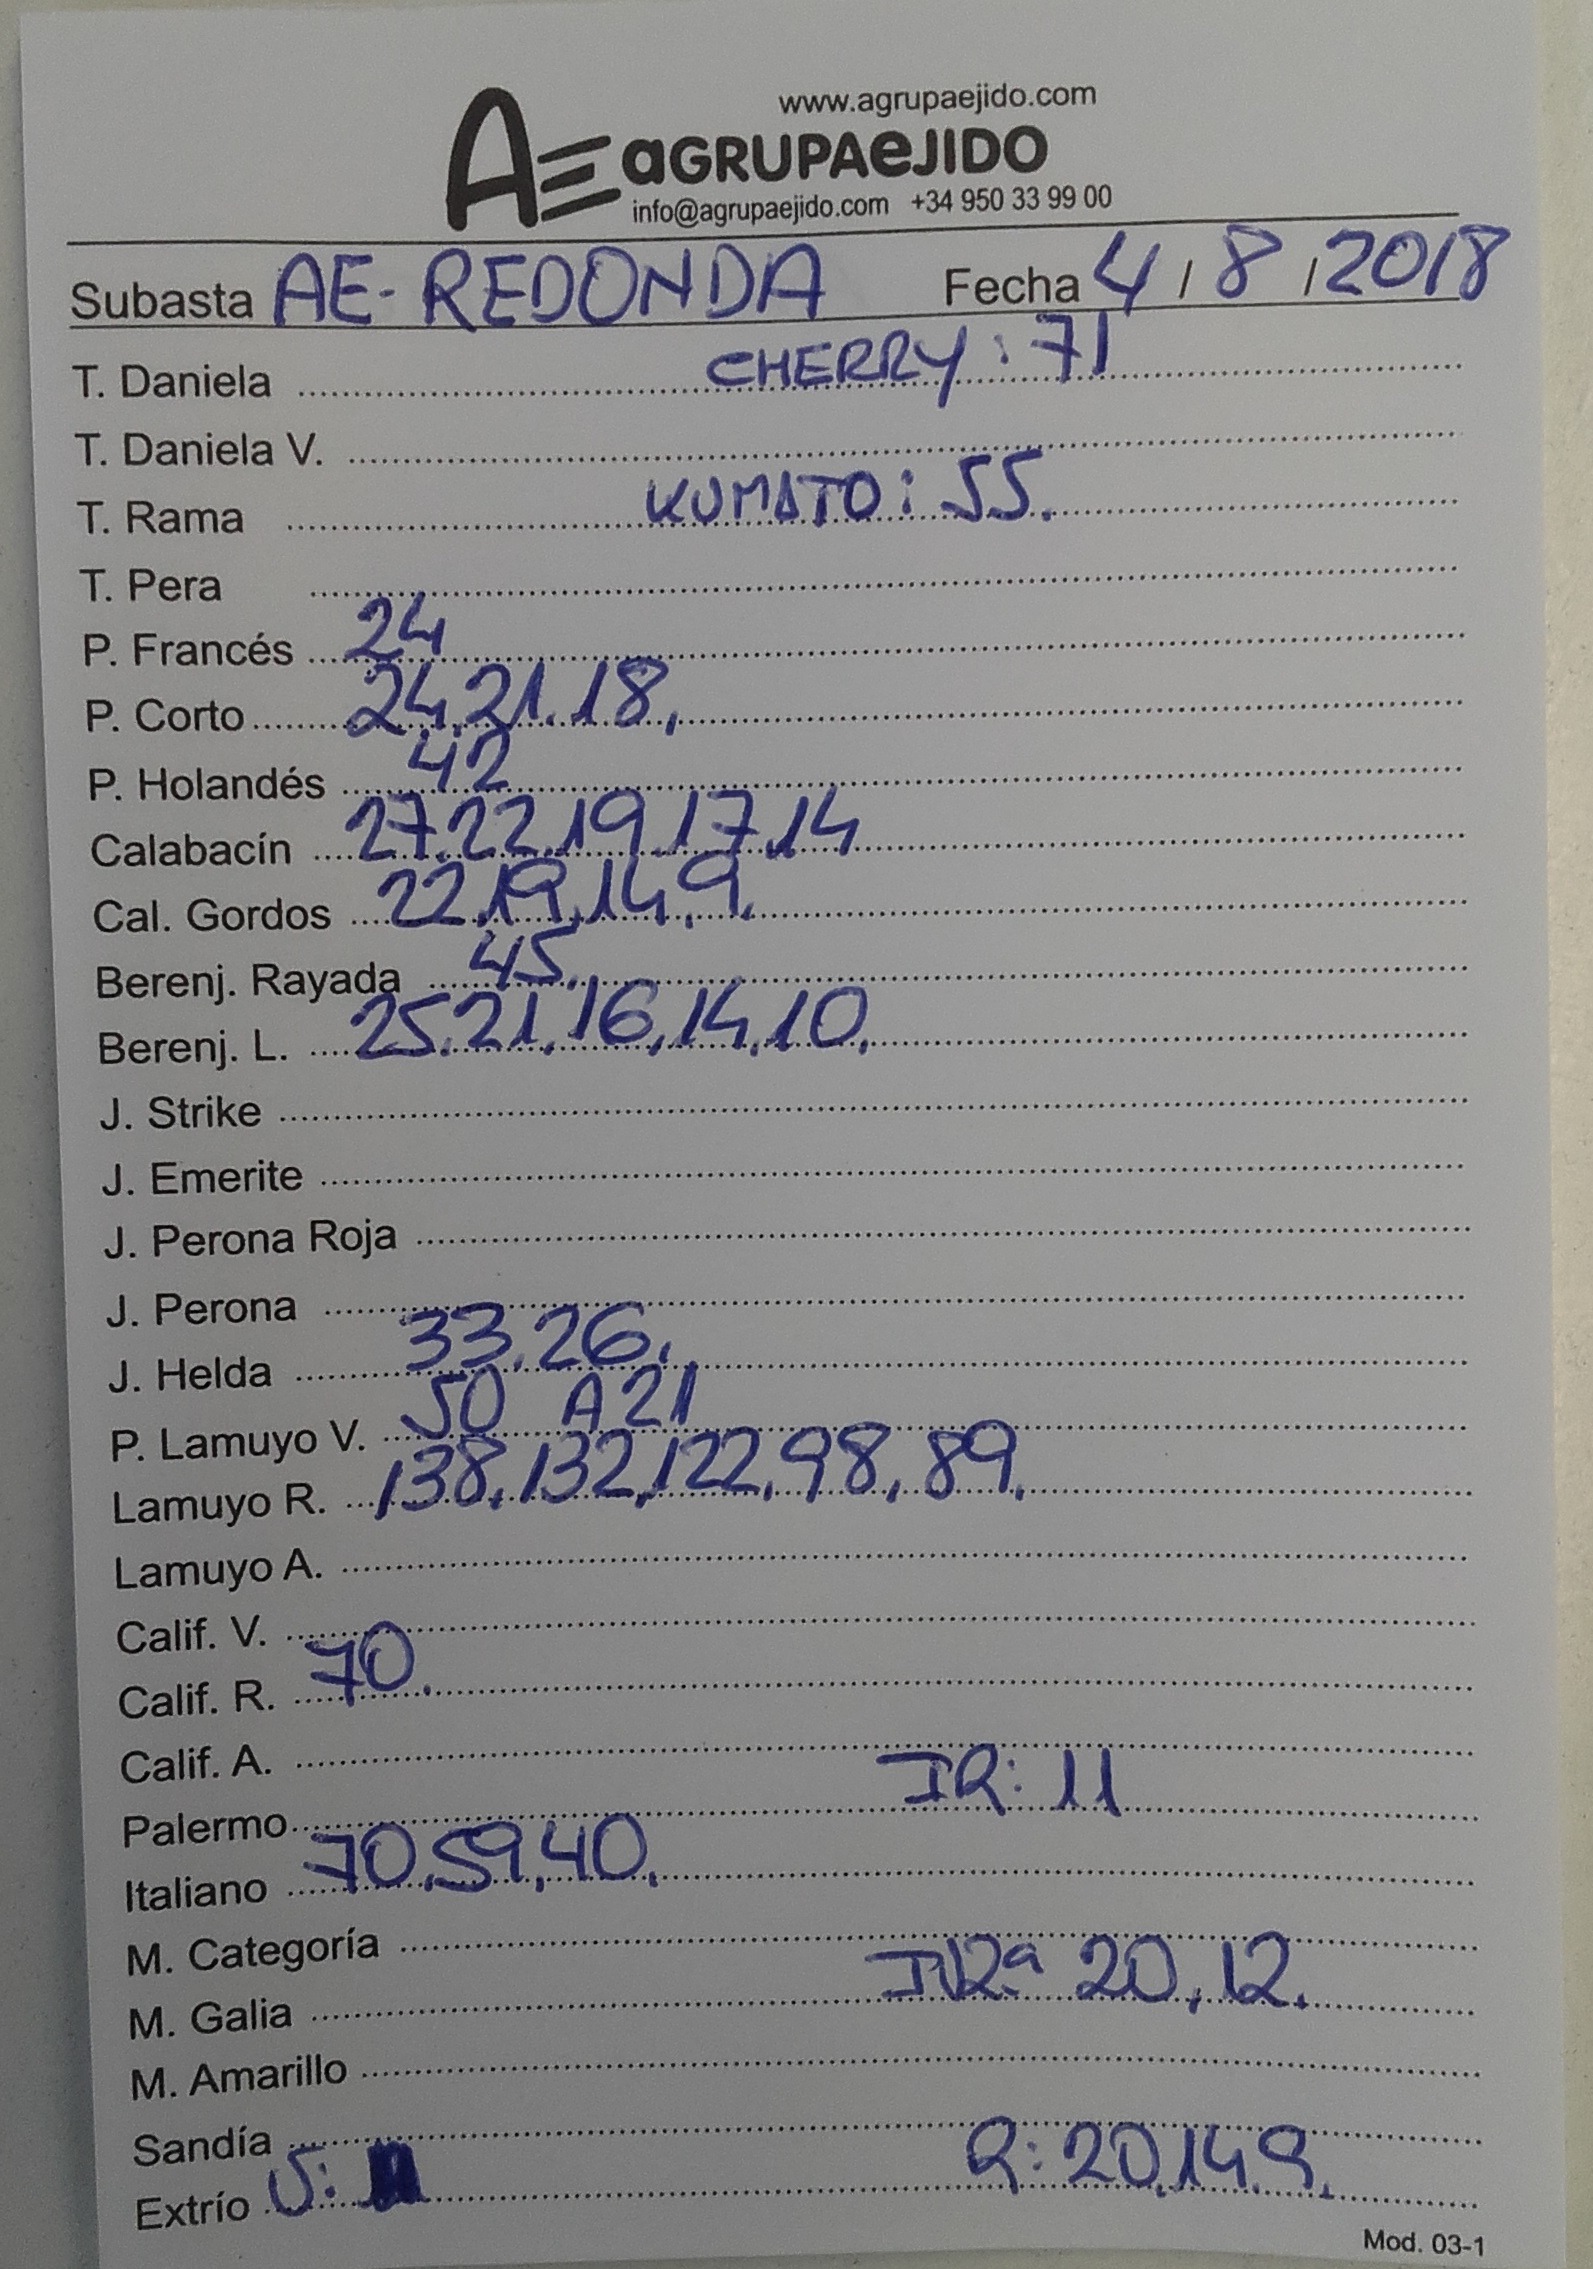 www.agrupaejido.com
AE aGRUPAeJIDO
info@agrupaejido.com +34 950 33 99 00
Subasta AE-REDONDA Fecha 4/8/2018
T. Daniela CHERRY: 71
T. Daniela V.
T. Rama KUMATO: 55.
T. Pera
P. Francés 24
P. Corto 24,21.18,
P. Holandés 42
Calabacín 27.22.19.17.14
Cal. Gordos 22,19,14,9.
Berenj. Rayada 45.
Berenj. L. 25.21,16,14,10,
J. Strike
J. Emerite
J. Perona Roja
J. Perona
J. Helda 33.26.
P. Lamuyo V. 50 A 21
Lamuyo R. 138,132,122,98,89,
Lamuyo A.
Calif. V.
Calif. R. 70.
Calif. A.
Palermo 11
Italiano 70,59,40,
M. Categoría
M. Galia 20,12.
M. Amarillo
Sandía
Extrío V: R: 20,14,9.
Mod. 03-1